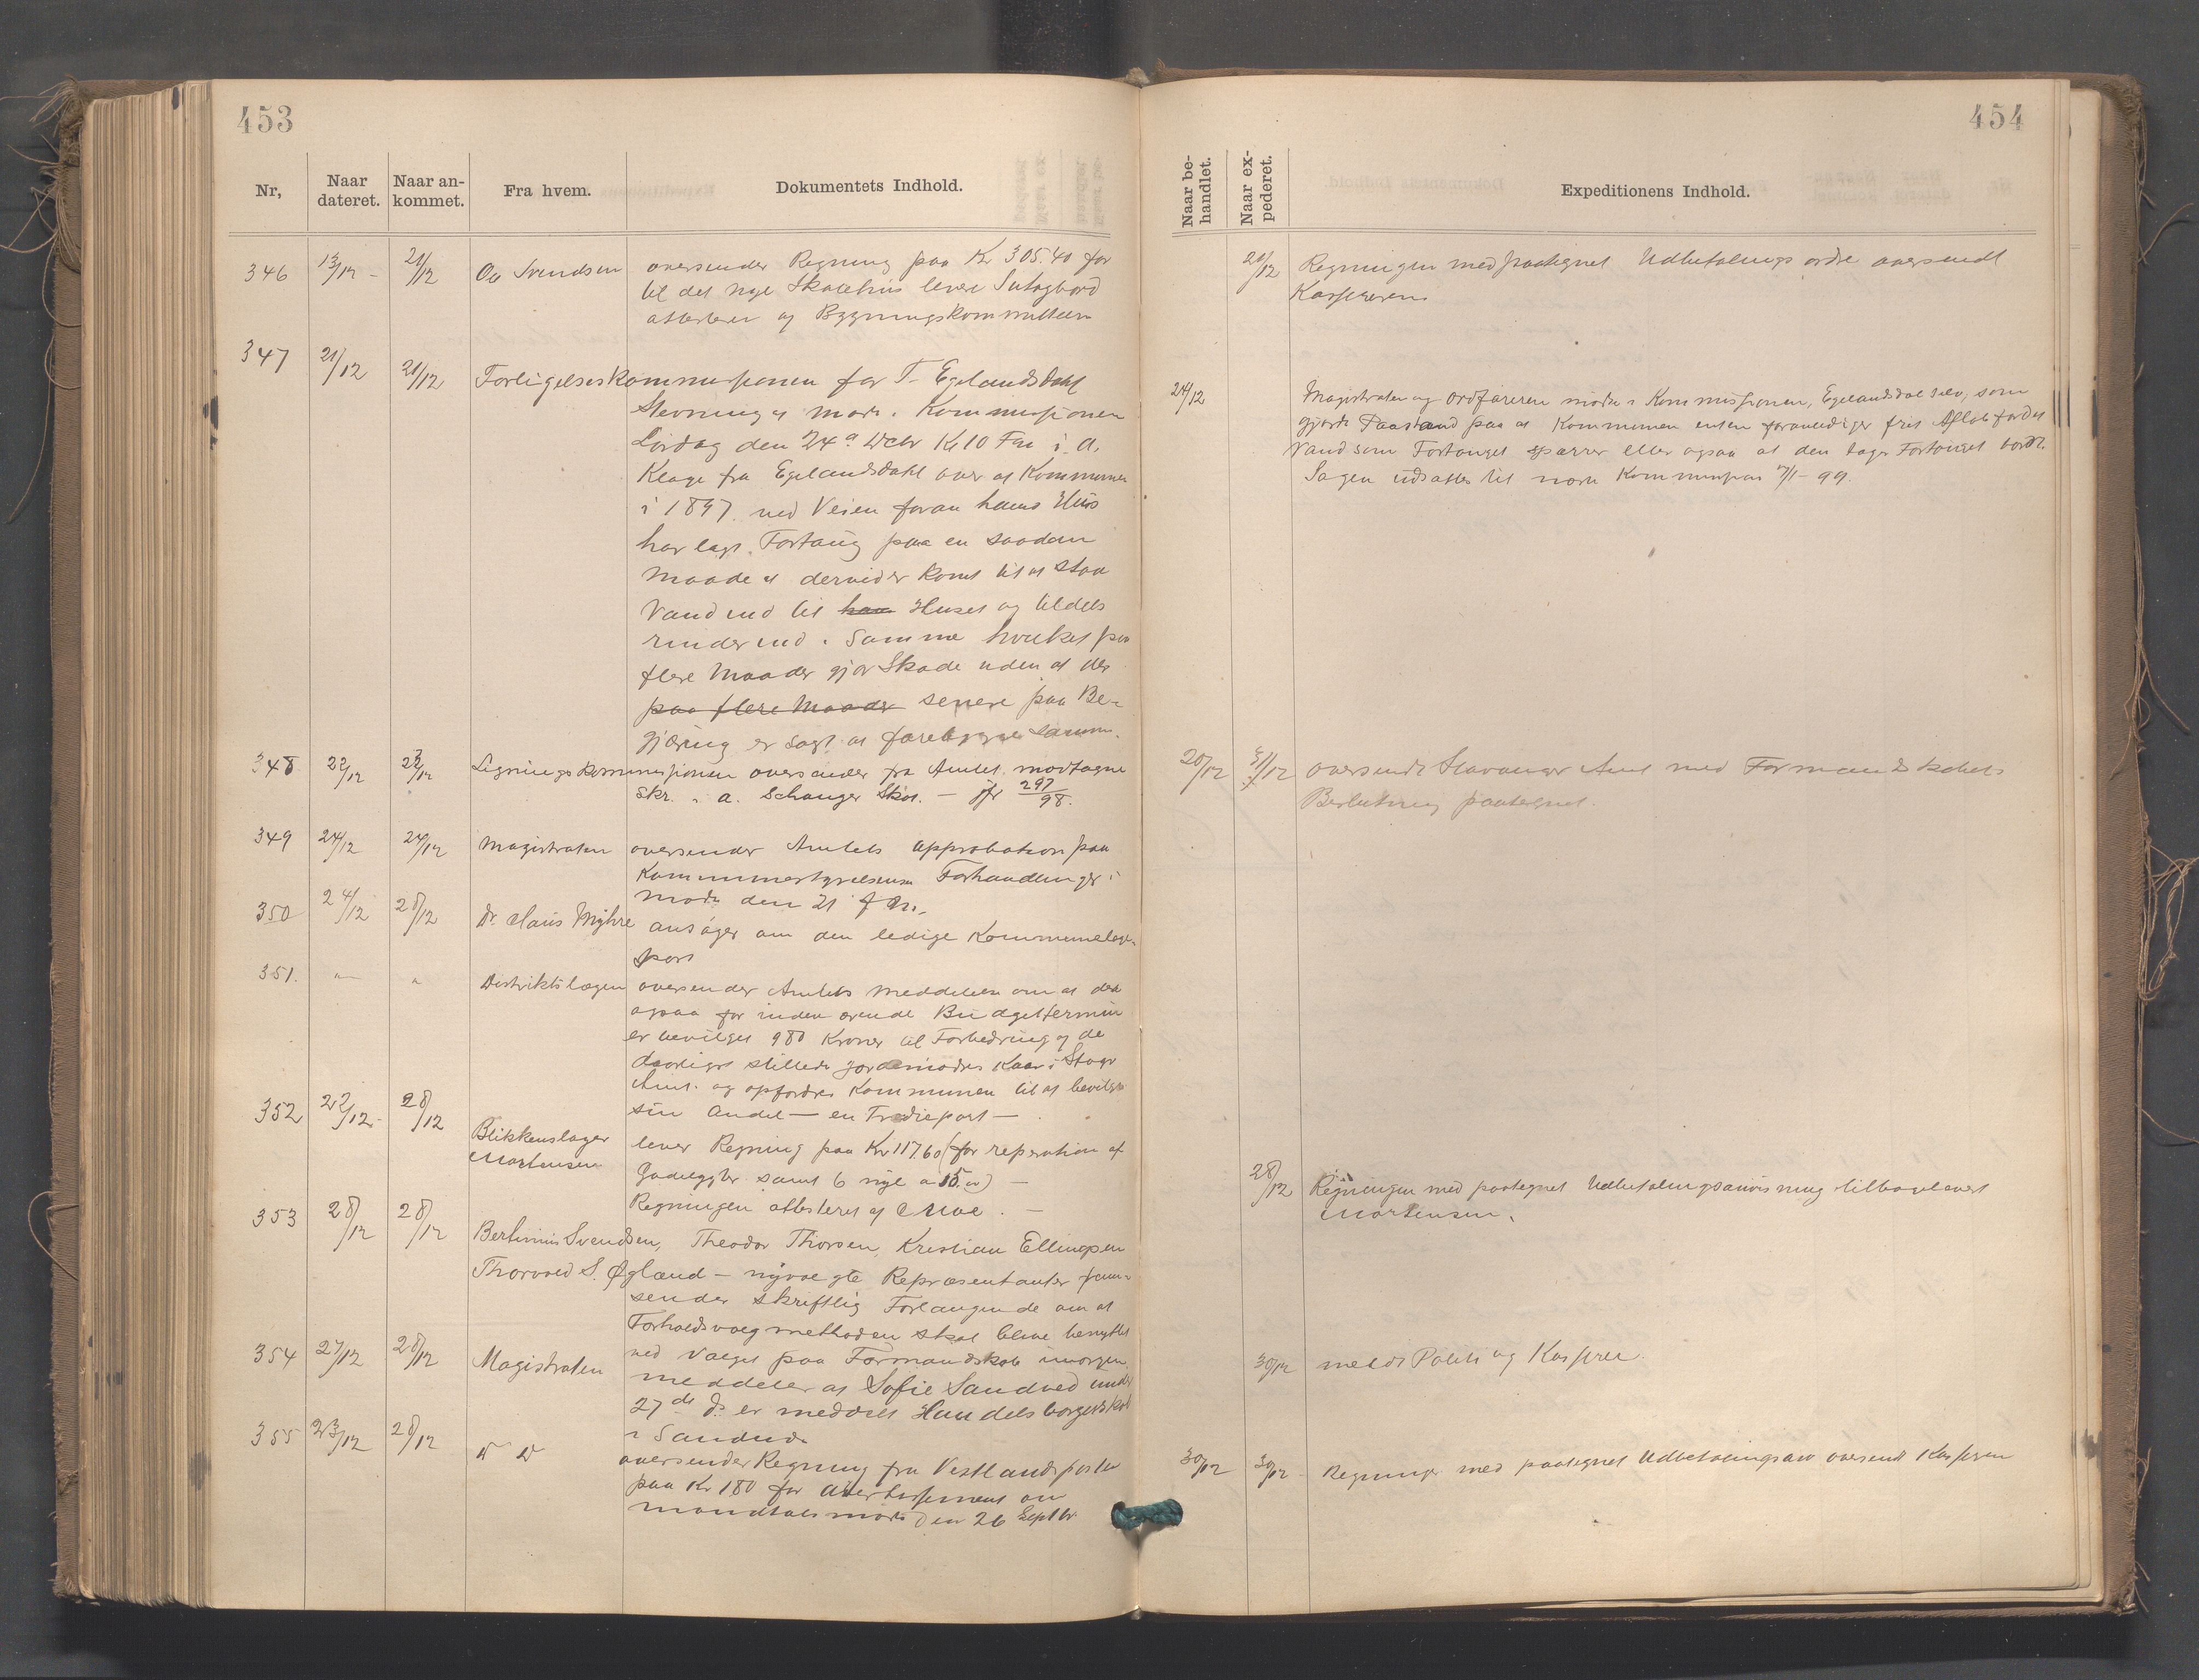 453
Nr,
Naar dateret.
Naar ankommet.
Fra hvem.
Dokumentets Indhold.
346 13/12 - 21/12 Oa Svendsen oversender Regning paa Kr 305.40 for
til det nye Skolehus levere
attesteret af Bygningskommitteen
347 21/12 21/12 Forligelseskommissionen for T. Egelandsdahl
Stevning at møde i Kommissionen
Lørdag den 24de Decbr Kl 10 Fm i a.
Klage fra Egelandsdahl over at Kommunen
i 1897 ved Veien foran hans Hus
har lagt Fortaug paa en saadan
Maade at derved er komt til at staa
Vand ind til han Huset og tildels
rinder ind i samme hvilket paa
flere Maader gjør Skade uden at der
paa flere Maader senere paa Be-
gjæring er søgt at forebygge samme.
348 22/12 22/12 Ligningskommissionen oversender fra Amtet modtagne
Skr. i a. Schanger Skat. - jfr 297/98.
349 24/12 24/12 Magistraten oversender Amtets approbation paa
Kommunestyrelsens Forhandlinger i
møde den 21 f.M.
350 24/12 28/12 Dr. Claus Myhre ansøger om den ledige Kommunelæge-
post
351. " " Distriktslægen oversender Amtets meddelelse om at der
ogsaa for inden ærende Budgettermin
er bevilget 980 Kroner til Forbedring af de
daarligst stillede Jordemødres Kaar i Stavgr
Amt. og opfordrer Kommunen til at bevilge
sin Andel - en Trediepart -
352 22/12. 28/12 Blikkenslager Mortensen lever Regning paa Kr 117.60 (for reperation af
Gadelygter samt 6 nye a 15.00) -
Regningen attesteret af Moe. -
353 28/12 28/12 Bertinius Svendsen, Theodor Thorsen, Kristian Ellingsen
Thorvald S. Øgland - nyvalgte Repræsentanter frem-
sender skriftlig Forlangende om at
Forholdsvalgmethoden skal blive benyttet
ved Valget paa Formandskab imorgen.
354 27/12 28/12 Magistraten meddeler at Sofie Sandved under
27de ds. er meddelt Handelsborgerskab
i Sandnes
355 23/12 28/12 D D oversender Regning fra Vestlandsposten
paa Kr 1.80 for Avertissement om
mandtalsmøde den 26 Septbr.
454
Naar behandlet.
Naar expederet.
Expeditionens Indhold.
21/12 Regningen med paategnet Udbetalings ordre oversendt
Kassereren
24/12 Magistraten og Ordføreren møder i Kommissionen, Egelandsdal selv, som
gjorde Paastand paa at Kommunen enten foranlediger frit Afløb for det
Vand som Fortauget spærrer eller ogsaa at den tager Fortauget bort.
Sagen udsattes til næste Kommission 7/1-99.
20/12 31/12 oversendt Stavanger Amt med Formandskabets
Beslutning paategnet.
28/12 Regningen med paategnet Udbetalingsanvisning tilbageleveret
Mortensen.
30/12 meldt Politi og Kasserer.
30/12 30/12 Regninge med paategnet Udbetalingsanv oversendt Kasseren